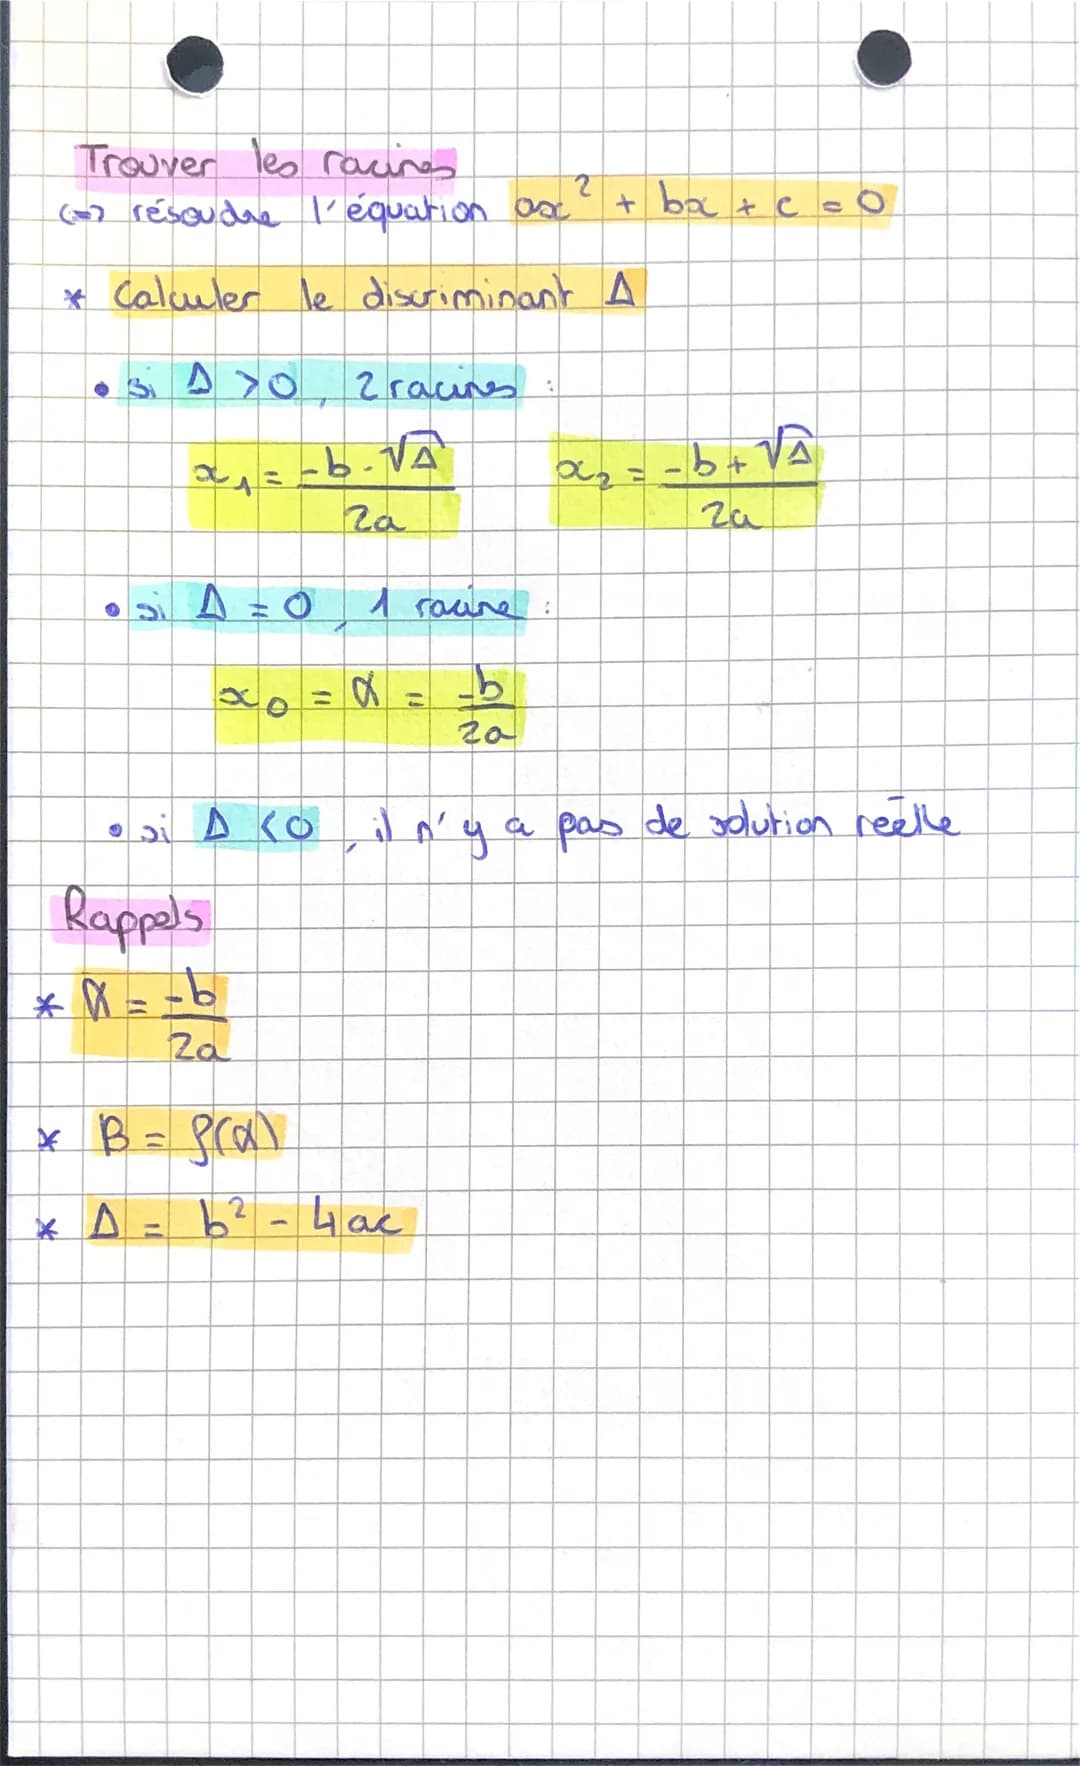 Trouver les racines
<=> résoudre l'équation ax² + bx + c = 0
* Calculer le discriminant Δ
• si Δ > 0, 2 racines :
x₁ = -b - √Δ / 2a    x₂ = -b + √Δ / 2a
• si Δ = 0, 1 racine :
x₀ = α = -b / 2a
• si Δ < 0, il n'y a pas de solution réelle
Rappels
* α = -b / 2a
* B = f(α)
* Δ = b² - 4ac